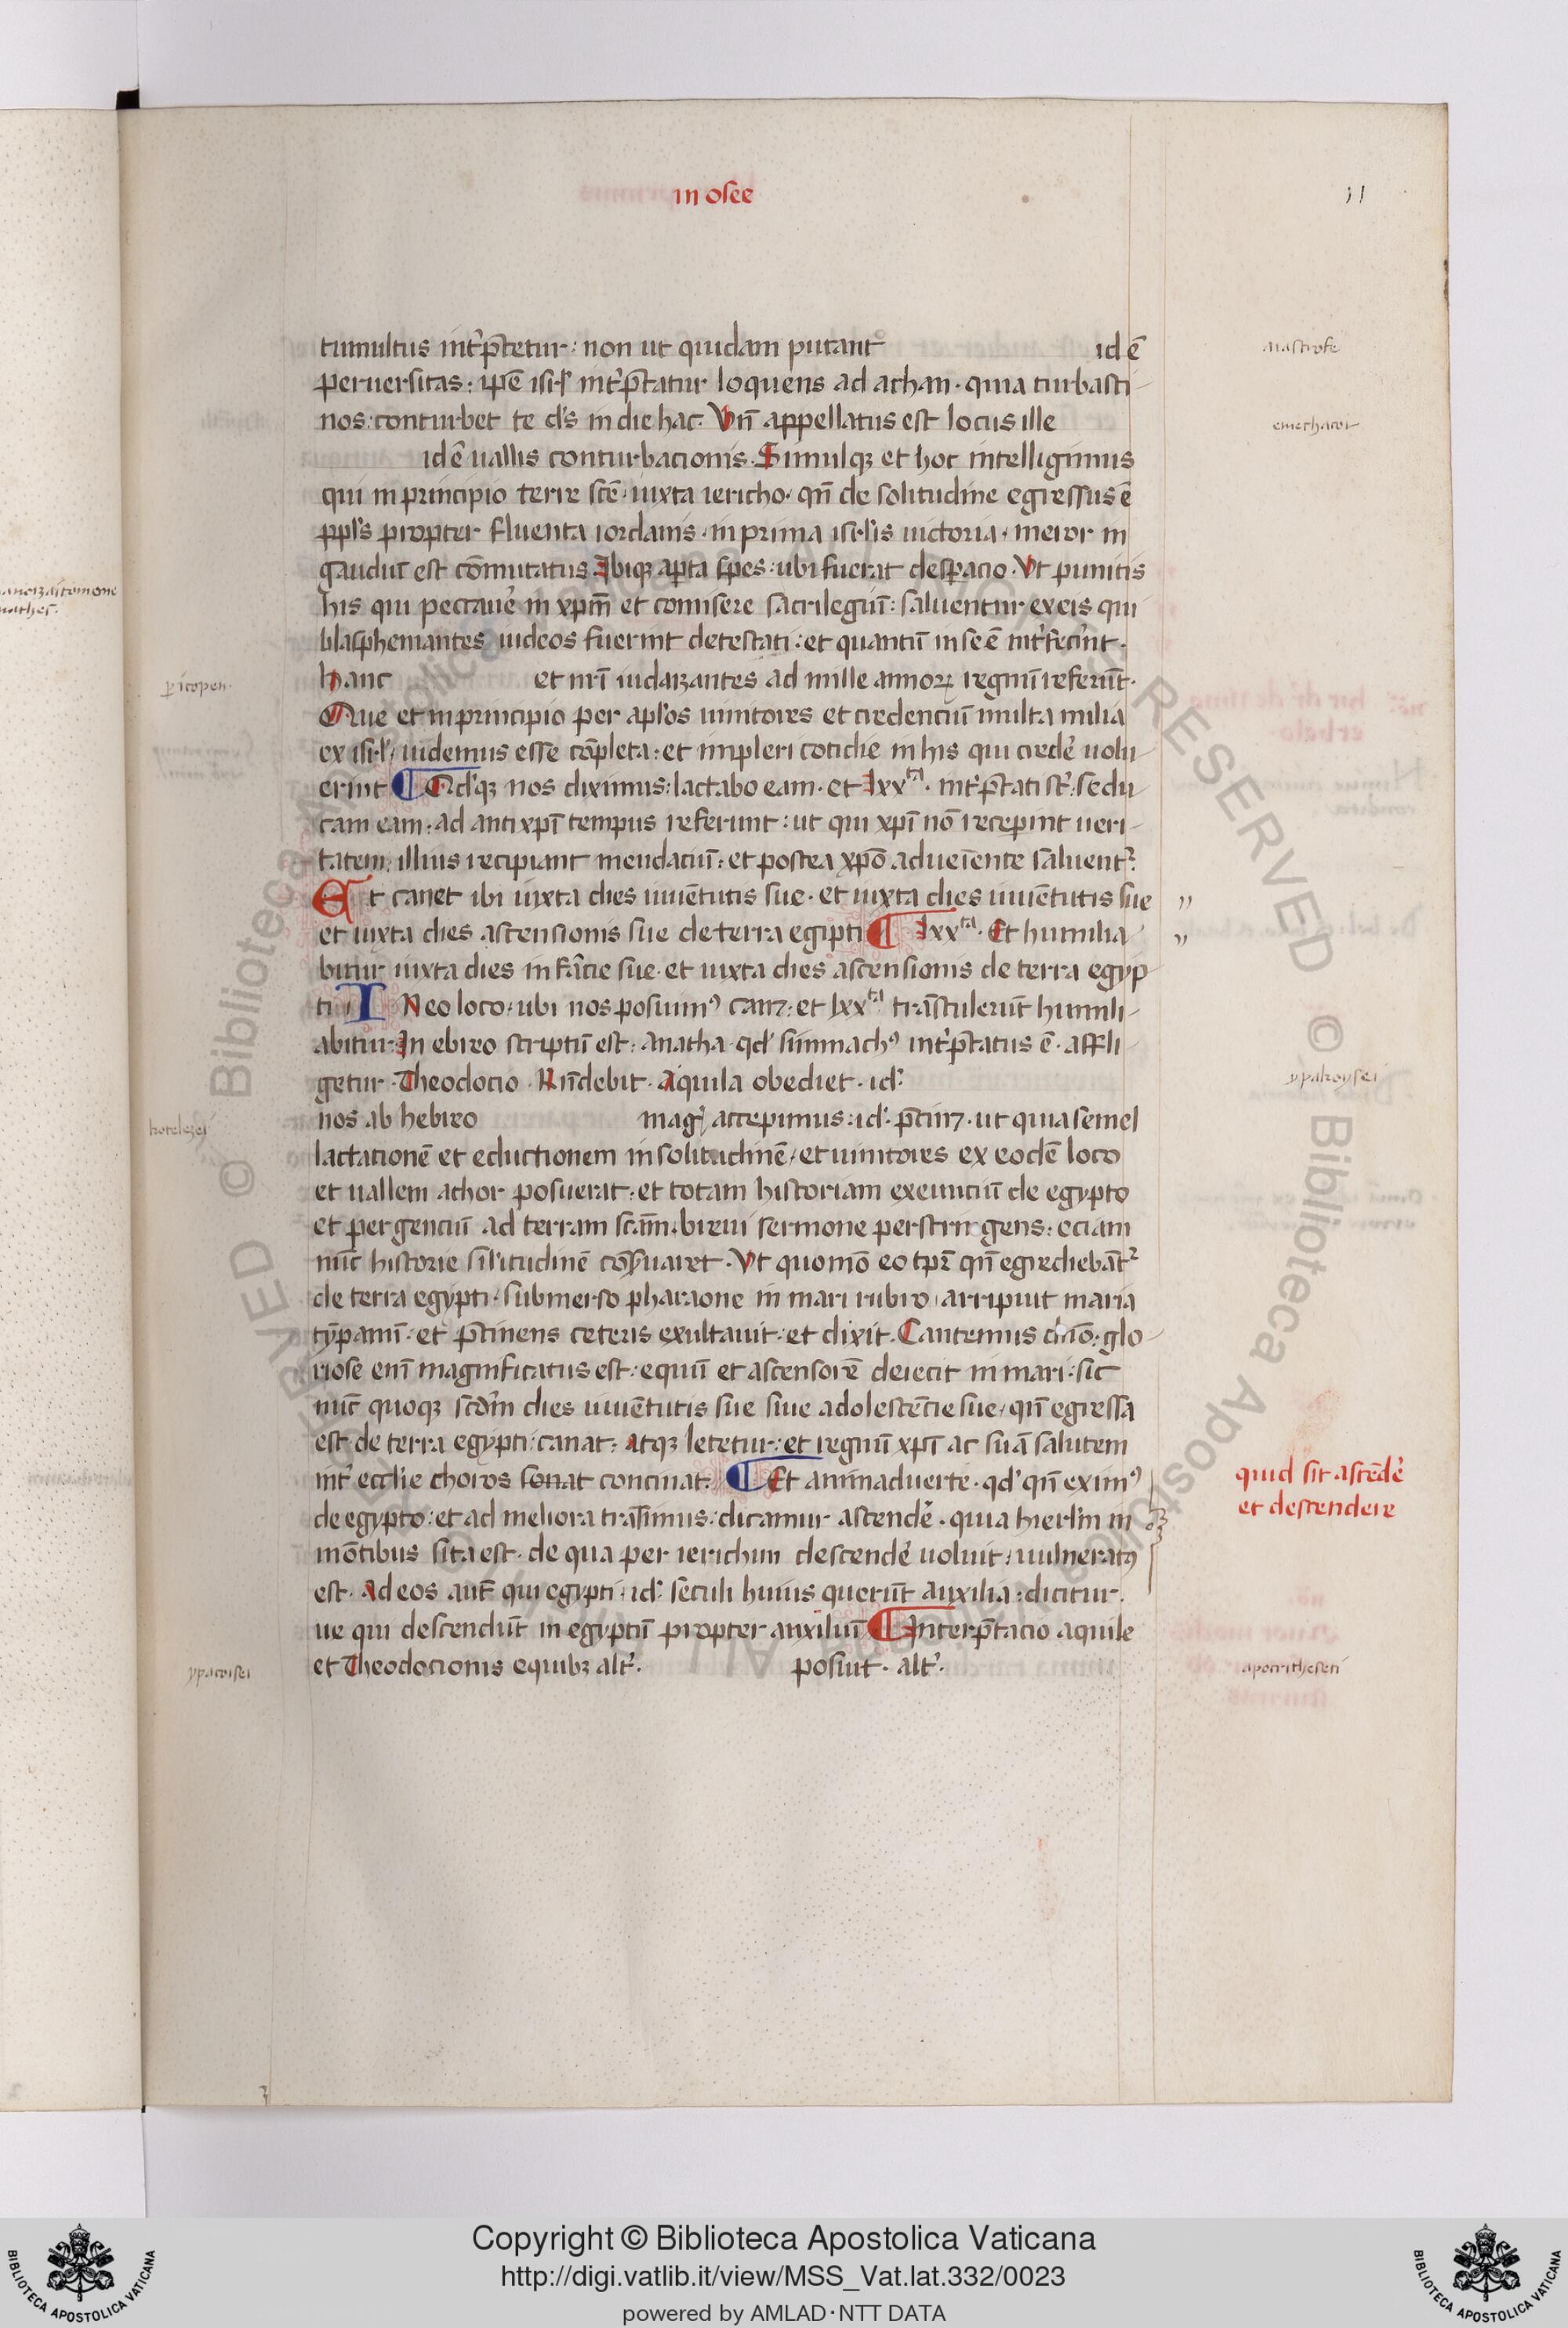 in osee
11
tumultus int̉p̄tetur: non ut quidam putant id ē
peruersitas: ip̄e isr̄l int̉p̄tatur loquens ad achan. quia turbasti
nos: conturbet te d̄s in die hac. Vn̄ appellatus est locus ille
id ē uallis conturbacionis. Simulqꝫ et hoc intelligimus
qui in principio terre sc̄e iuxta iericho. qn̄ de solitudine egressus ē
ppl̄s propter fluenta iordanis. in prima isrl̄is uictoria. meror in
gaudiū est cōmutatus Ibiqꝫ apta spes: ubi fuerat desperacio. Vt punitis
his qui peccauer̉ in xp̄m et comisere sacrilegiū: saluentur ex eis qui
blasphemantes iudeos fuerint detestati: et quantū in se ē int̉fecer̉int.
hanc et nr̄i iudaizantes ad mille annoꝝ regnū referūt.
Que et in principio per apl̄os uinitores et credenciū multa milia
ex isr̄l, uidemus esse cōpleta: et impleri cotidie in his qui creder̉ uolu
erint Id qꝫ nos diximus: lactabo eam. et lxxᵗᵃ. int̉p̄tati st̉: sedu
cam eam. ad antixp̄i tempus referunt: ut qui xp̄i nō receperint ueri
tatem, illius recipiant mendaciū: et postea xp̄o adueiente saluentᷣ.
Et canet ibi iuxta dies iuuētutis sue. et iuxta dies iuuētutis sue
et iuxta dies ascensionis sue de terra egipti lxxᵗᵃ. Et humilia
bitur iuxta dies infācie sue. et iuxta dies ascensionis de terra egyp
ti. IN eo loco. ubi nos posuimꝰ canꝫ: et lxxᵗᵃ trāstulerūt humili
abitur. In ebreo scriptū est. anatha. qd̉ simmachꝰ int̉p̄tatus ē. affli
getur. Theodocio. Rn̄debit. Aquila obediet. id̉.
nos ab hebreo magꝭ accepimus: id̉. p̄cinꝫ. ut quia semel
lactationē et eductionem in solitudinē, et uinitores ex eodē loco
et uallem achor posuerat: et totam historiam exeunciū de egypto
et pergenciū ad terram scām. breui sermone perstringens: eciam
nūc historie sil̄itudinē cōẜuaret. Vt quomō eo tp̄r qn̄ egrediebātᷣ
de terra egypti. submerso pharaone in mari rubro arripuit maria
tȳpanū: et p̄cinens ceteris exultauit: et dixit. Cantemus dn̄o: glo
riose eni̅ magnificatus est: equū et ascensorē deiecit in mari: sic
nūc quoqꝫ scdm̄ dies iuuētutis sue siue adolescēcie sue, qn̄ egressa
est de terra egypti: canat: atqꝫ letetur: et regnū xp̄i ac suā salutem
int̉ eccl̄ie choros sonat concinat. Et animaduerte. qd̉ qn̄ eximꝰ
de egypto: et ad meliora trāsimus: dicamur ascender̉. quia hierl̄m in
mōtibus sita est. de qua per ierichum descender̉ uoluit: uulneratꝰ
est. Ad eos aut̄ qui egypti. id̉. seculi huius querūt auxilia: dicitur.
ue qui descendūt in egyptū propter auxiliū Interp̄tacio aquile
et Theodocionis equibꝫ alt̉. posuit. alt̉.
emechacor
p̱icopen.
ypakoysei
quid sit ascēder̉
et descendere
ypacoisei